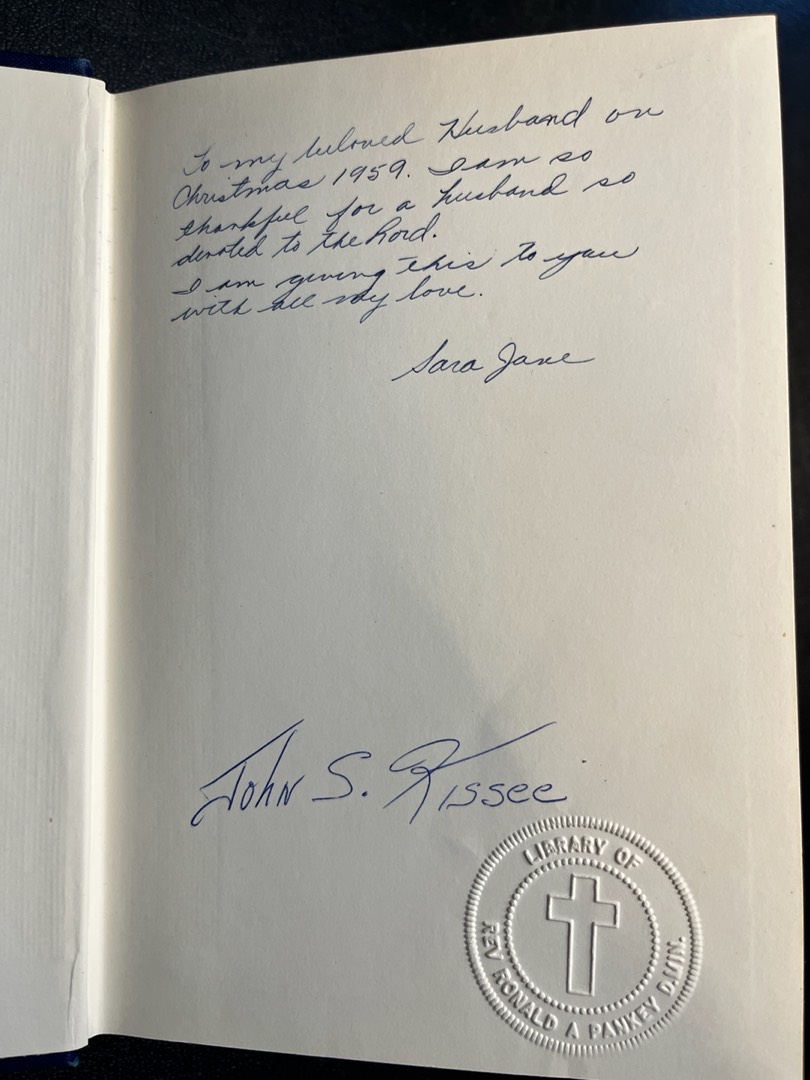 To my beloved Husband on
Christmas 1959. I am so
thankful for a husband so
devoted to the Lord.
I am giving this to you
with all my love.
Sara Jane
John S. Kissee
LIBRARY OF
REV RONALD A PANKEY D.MIN.